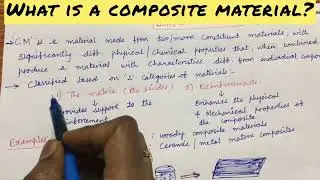 What is a composite material?
→ 'C.M' is a material made from two/more constituent materials, with
significantly diff. physical/chemical properties that, when combined
produce a material with characteristics diff. from individual compon
→ Classified based on 2 categories of materials:-
1) The matrix (the binder) 2) Reinforcements:
provides support to the
Enhances the physical
& Mechanical properties of
the composite
Examples
: woody composite materials
: Ceramic / metal matrix composites